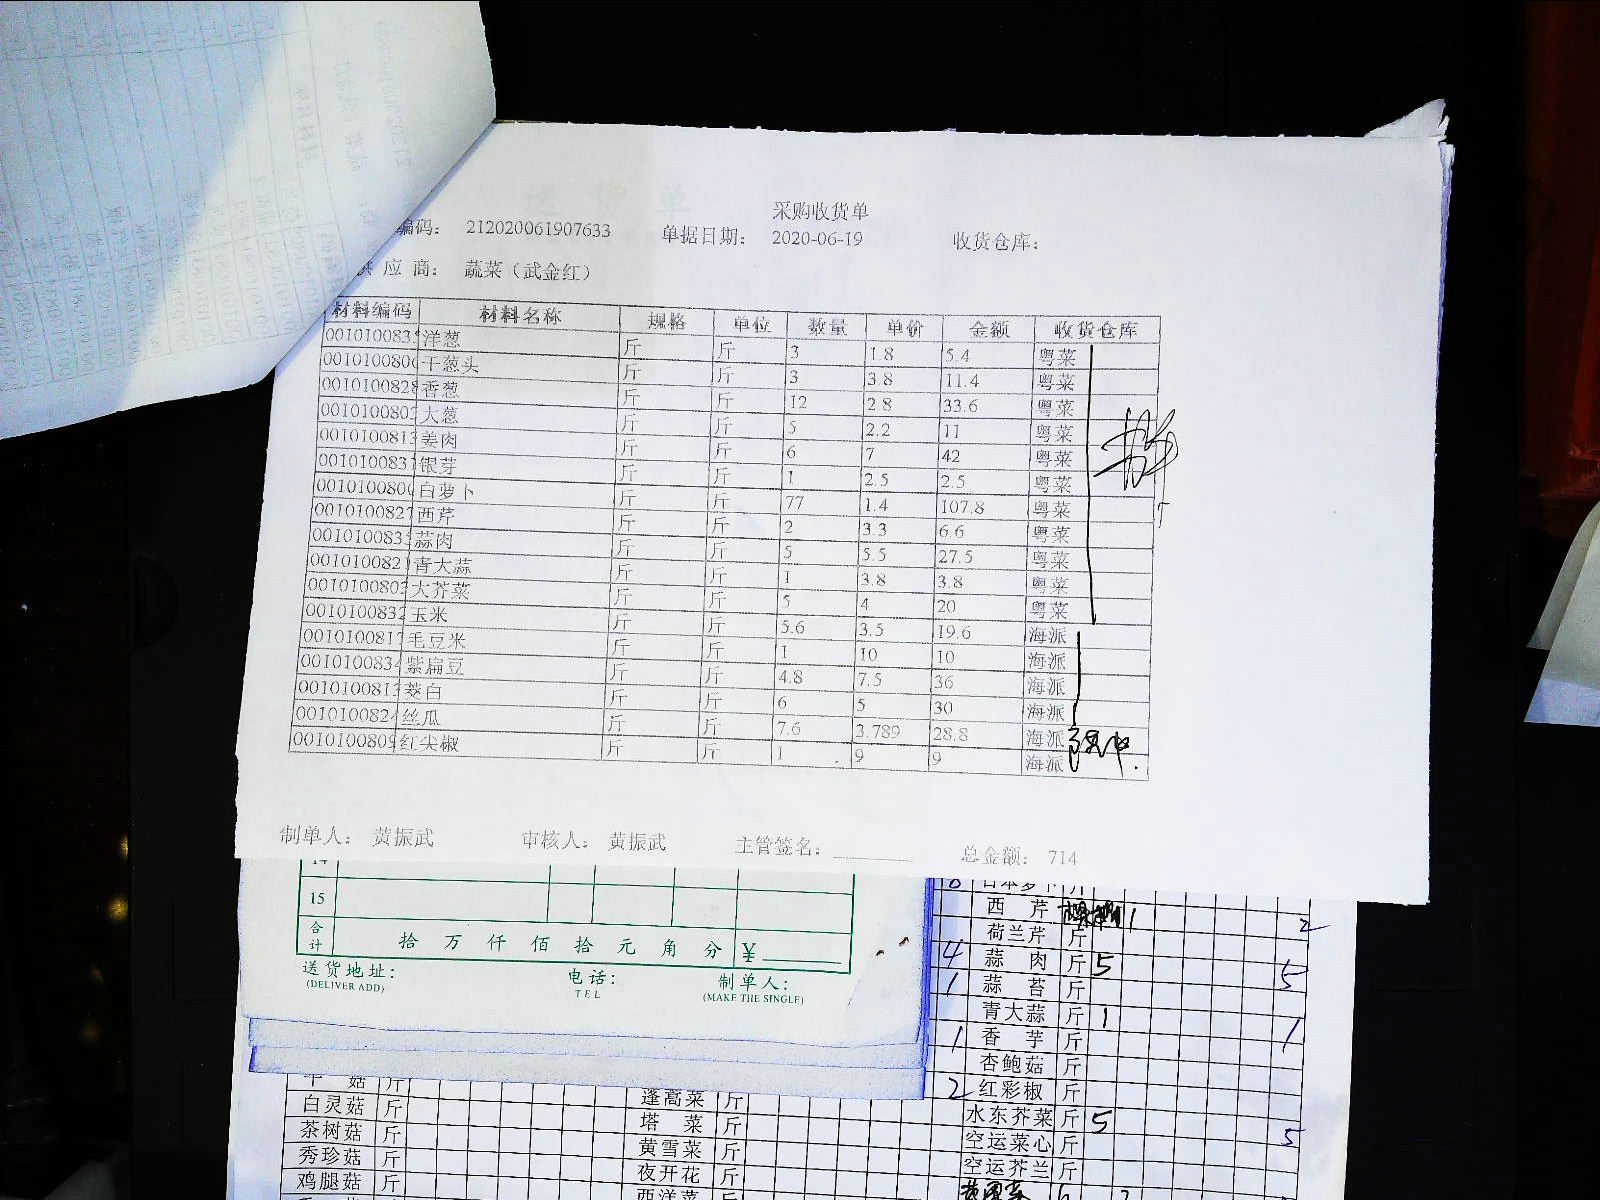 采购收货单
编码： 212020061907633 单据日期： 2020-06-19 收货仓库：
应商： 蔬菜（武金红）
材料编码 材料名称 规格 单位 数量 单价 金额 收货仓库
001010083 洋葱 斤 斤 3 1.8 5.4 粤菜
001010080 干葱头 斤 斤 3 3.8 11.4 粤菜
0010100828 香葱 斤 斤 12 2.8 33.6 粤菜
001010080 大葱 斤 斤 5 2.2 11 粤菜
0010100813 姜肉 斤 斤 6 7 42 粤菜
001010083 银芽 斤 斤 1 2.5 2.5 粤菜
001010080 白萝卜 斤 斤 77 1.4 107.8 粤菜
001010082 西芹 斤 斤 2 3.3 6.6 粤菜
001010083 蒜肉 斤 斤 5 5.5 27.5 粤菜
001010082 青大蒜 斤 斤 1 3.8 3.8 粤菜
001010080 大芥菜 斤 斤 5 4 20 粤菜
001010083 玉米 斤 斤 5.6 3.5 19.6 海派
001010081 毛豆米 斤 斤 1 10 10 海派
001010083 紫扁豆 斤 斤 4.8 7.5 36 海派
001010081 茭白 斤 斤 6 5 30 海派
001010082 丝瓜 斤 斤 7.6 3.789 28.8 海派
001010080 红尖椒 斤 斤 1 9 9 海派
制单人： 黄振武 审核人： 黄振武 主管签名： 总金额： 714
15
合计 拾 万 仟 佰 拾 元 角 分 ￥
送货地址： 电话： 制单人：
(DELIVER ADD) TEL (MAKE THE SINGLE)
西芹 1 2
荷兰芹 斤
4 蒜肉 斤 5 5
1 蒜苔 斤
青大蒜 斤 1 1
1 香芋 斤
杏鲍菇 斤
2 红彩椒 斤
水东芥菜 斤 5 5
空运菜心 斤
空运芥兰 斤
菇 斤 蓬蒿菜 斤
白灵菇 斤 塔菜 斤
茶树菇 斤 黄雪菜 斤
秀珍菇 斤 夜开花 斤
鸡腿菇 斤 西洋菜 斤